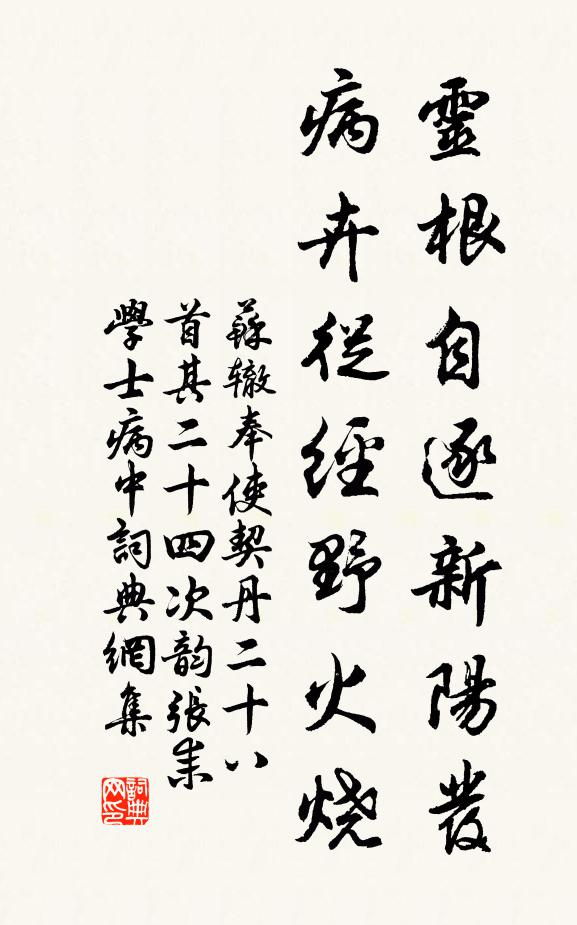 靈根自逐新陽發
病卉從經野火燒
蘇轍奉使契丹二十八
首其二十四次韵張耒
學士病中詞典網集
詞典
网印